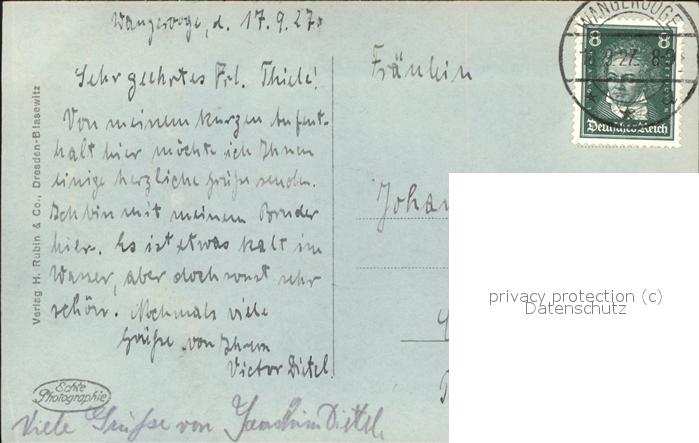 Wangerooge, d. 17.9.27.
Sehr geehrtes Frl. Thiele!
Von meinem kurzen Aufent-
halt hier möchte ich Ihnen
einige herzliche Grüße senden.
Ich bin mit meinem Bruder
hier. Es ist etwas kalt im
Wasser, aber doch sonst sehr
schön. Nochmals viele
Grüße von Ihrem
Victor Dietel.
Viele Grüsse von Joachim Dietel.
Verlag H. Rubin & Co., Dresden-Blasewitz
Echte
Photographie
Fräulein
Johan
WANGEROOGE
8 8
9.27. 8-
Deutsches Reich
privacy protection (c)
Datenschutz